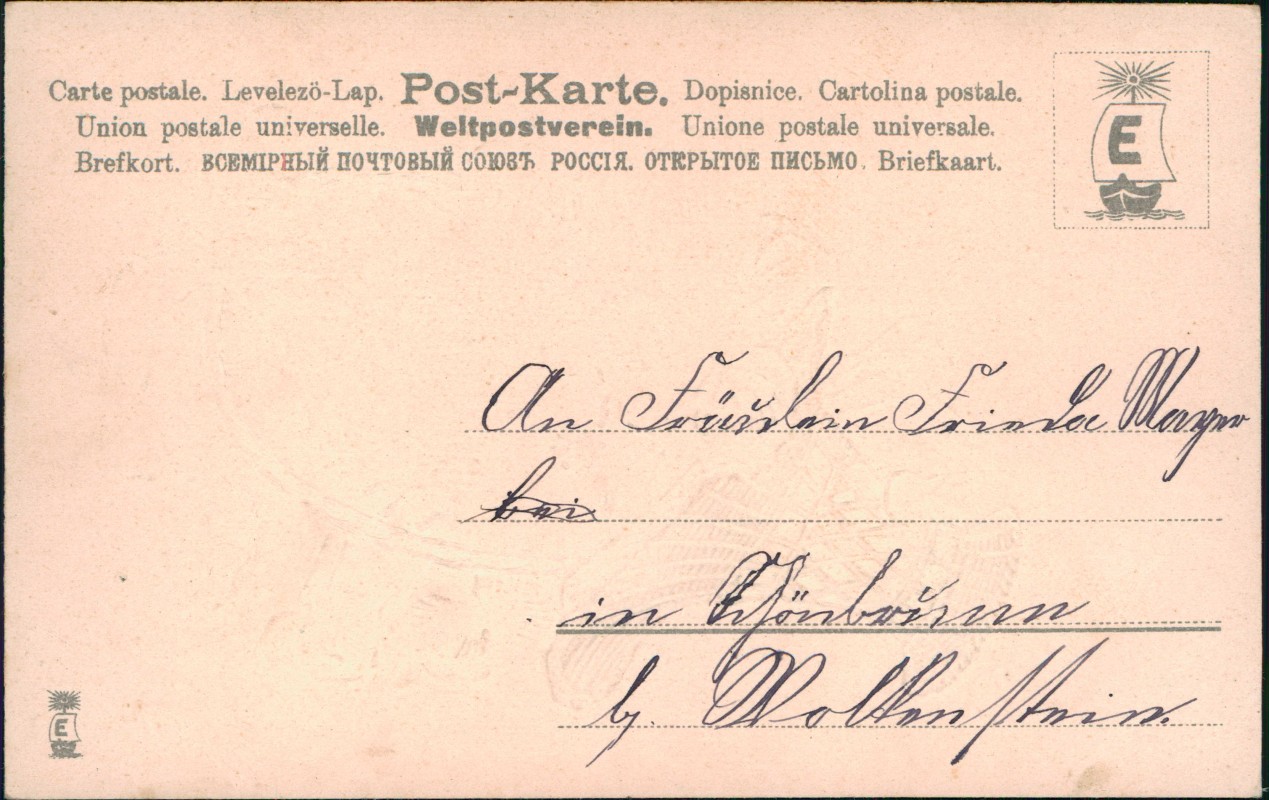 Carte postale. Levelezö-Lap. Post-Karte. Dopisnice. Cartolina postale.
Union postale universelle. Weltpostverein. Unione postale universale.
Brefkort. ВСЕМІРНЫЙ ПОЧТОВЫЙ СОЮЗЪ РОССІЯ. ОТКРЫТОЕ ПИСЬМО. Briefkaart.
E
An Fräulein Frieda Mayer
bei
in Schönbrunn
b. Wolkenstein.
E